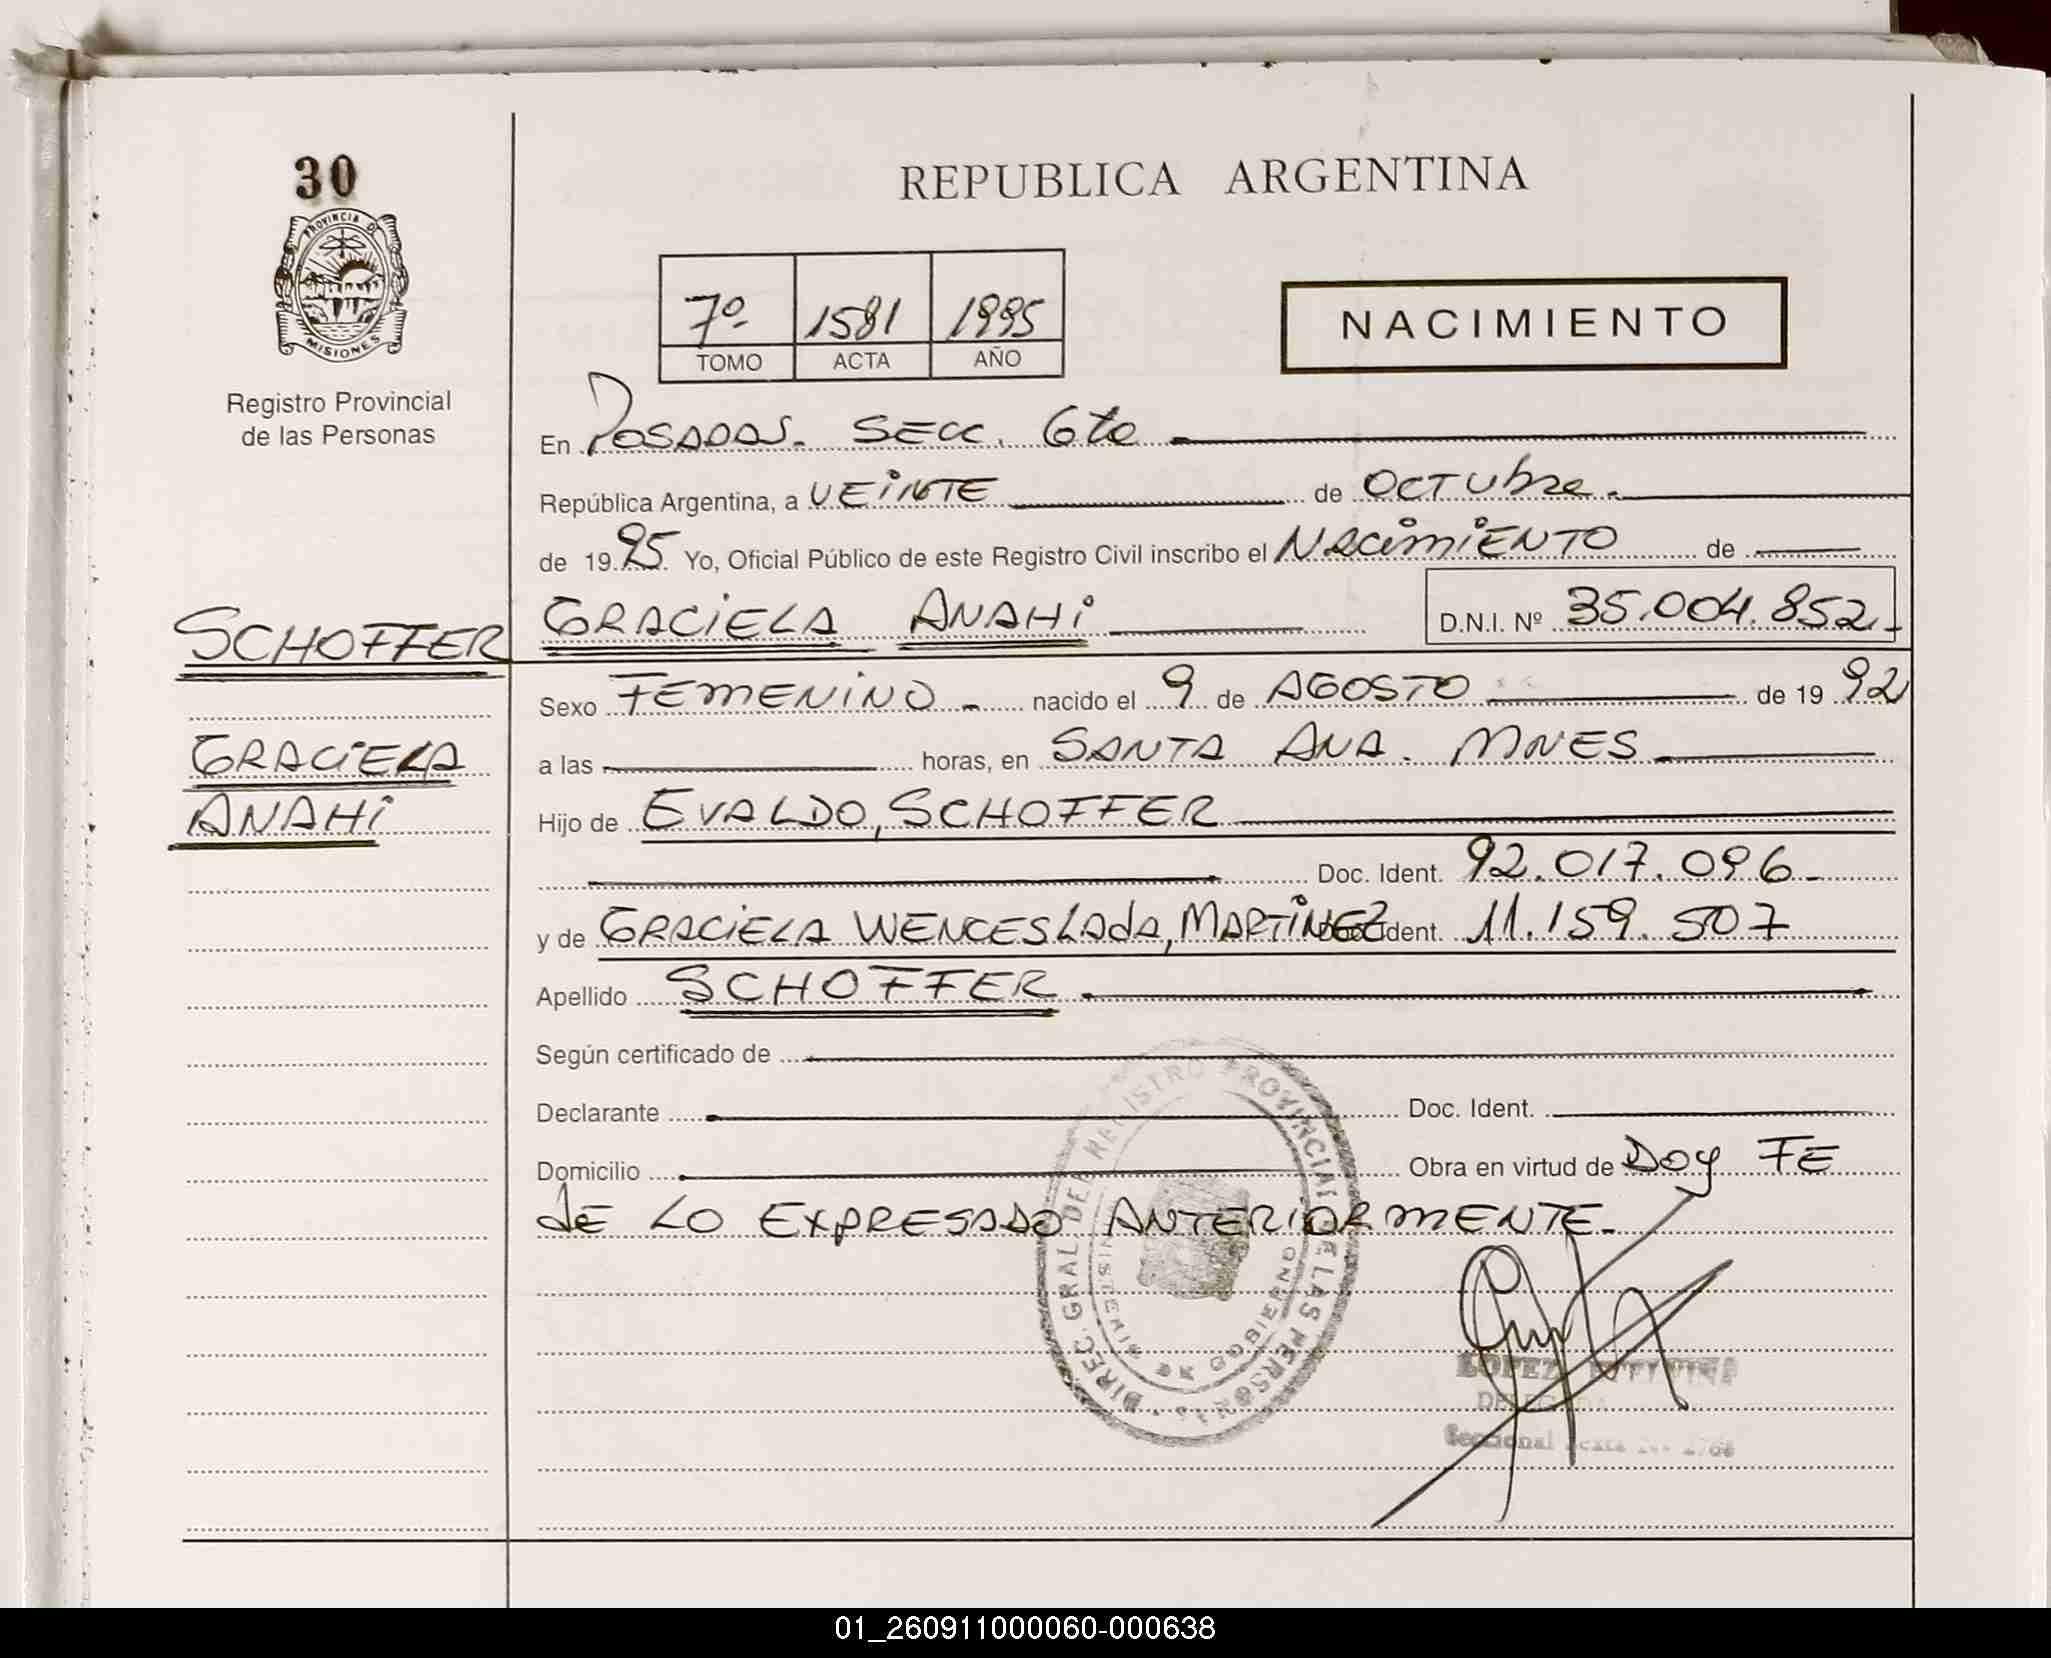 30
REPUBLICA ARGENTINA
PROVINCIA DE
MISIONES
Registro Provincial
de las Personas
7º 1581 1995
TOMO ACTA AÑO
NACIMIENTO
En Posadas. Secc. 6ta
República Argentina, a VEiNTE de OCTUbre.
de 19 95 Yo, Oficial Público de este Registro Civil inscribo el NAcimiENTO de
SCHOFFER
GRACiELA ANAHi D.N.I. Nº 35.004.852
Sexo FEMENiNO nacido el 9 de AGOSTO de 19 92
GRACiELA
a las horas, en SANTA ANA. MNES
ANAHi
Hijo de EVALDO, SCHOFFER
Doc. Ident. 92.017.096
y de GRACiELA WENCESLAdA, MARTiNEZ Doc. Ident. 11.159.507
Apellido SCHOFFER
Según certificado de
Declarante Doc. Ident.
Domicilio Obra en virtud de Doy FE
dE LO EXPRESADO ANTERiORMENTE.
DIREC. GRAL. DEL REGISTRO PROVINCIAL DE LAS PERSONAS
MINISTERIO GOBIERNO
LOPEZ
DELEGADA
Seccional Sexta
01_260911000060-000638